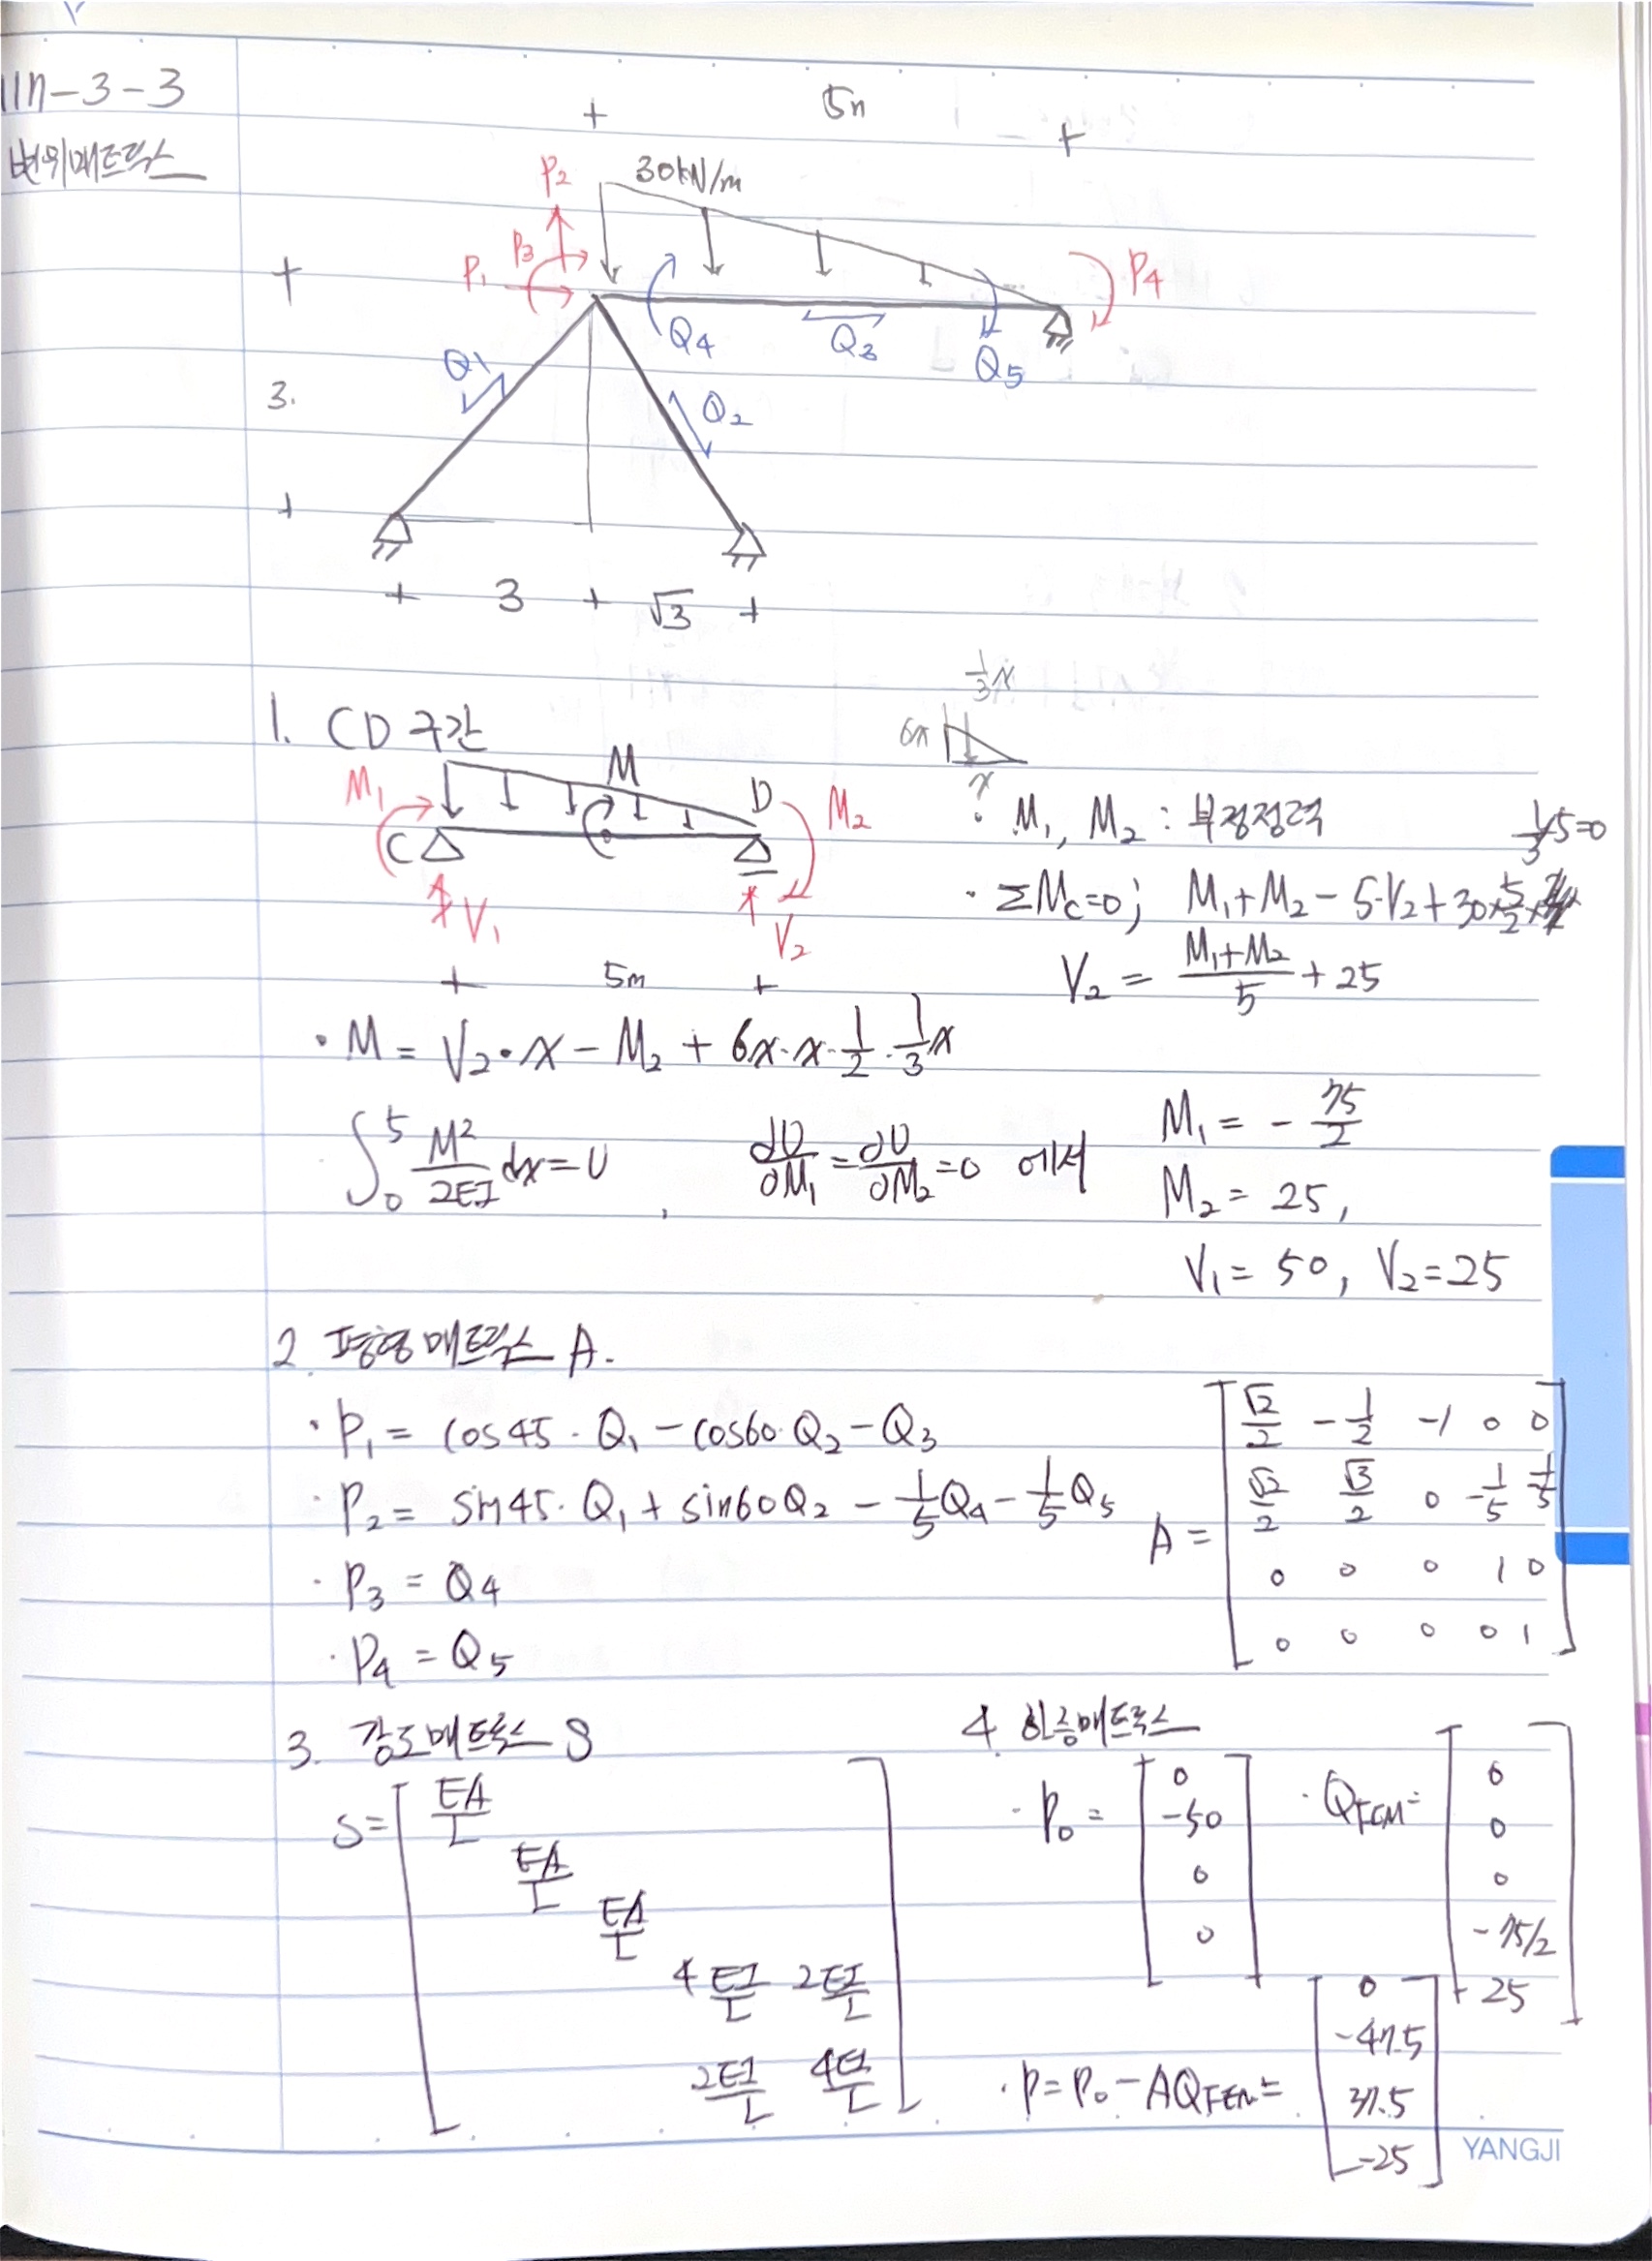 117-3-3
변위매트릭스
5m
30kN/m
P2
P3
P1
P4
Q1
Q2
Q3
Q4
Q5
3.
3
√3
1. CD 구간
M1 M D M2
C
V1 V2
5m
1/3x
6x
x
· M1, M2 : 부정정력
1/3·5=0
· ΣMc=0; M1+M2-5·V2+30×5/2×
V2 = (M1+M2)/5 + 25
· M = V2·x - M2 + 6x·x·1/2·1/3x
∫₀⁵ M²/2EI dx = U, ∂U/∂M1 = ∂U/∂M2 = 0 에서
M1 = -75/2
M2 = 25,
V1 = 50, V2 = 25
2. 평형매트릭스 A.
· P1 = cos45·Q1 - cos60·Q2 - Q3
· P2 = sin45·Q1 + sin60Q2 - 1/5Q4 - 1/5Q5
· P3 = Q4
· P4 = Q5
A =
√2/2 -1/2 -1 0 0
√2/2 √3/2 0 -1/5 -1/5
0 0 0 1 0
0 0 0 0 1
3. 강도매트릭스 S
S =
EA/L
EA/L
EA/L
4EI/L 2EI/L
2EI/L 4EI/L
4. 하중매트릭스
· P0 =
0
-50
0
0
· QFEM =
0
0
0
-75/2
+25
· P = P0 - AQFEM =
0
-47.5
37.5
-25
YANGJI